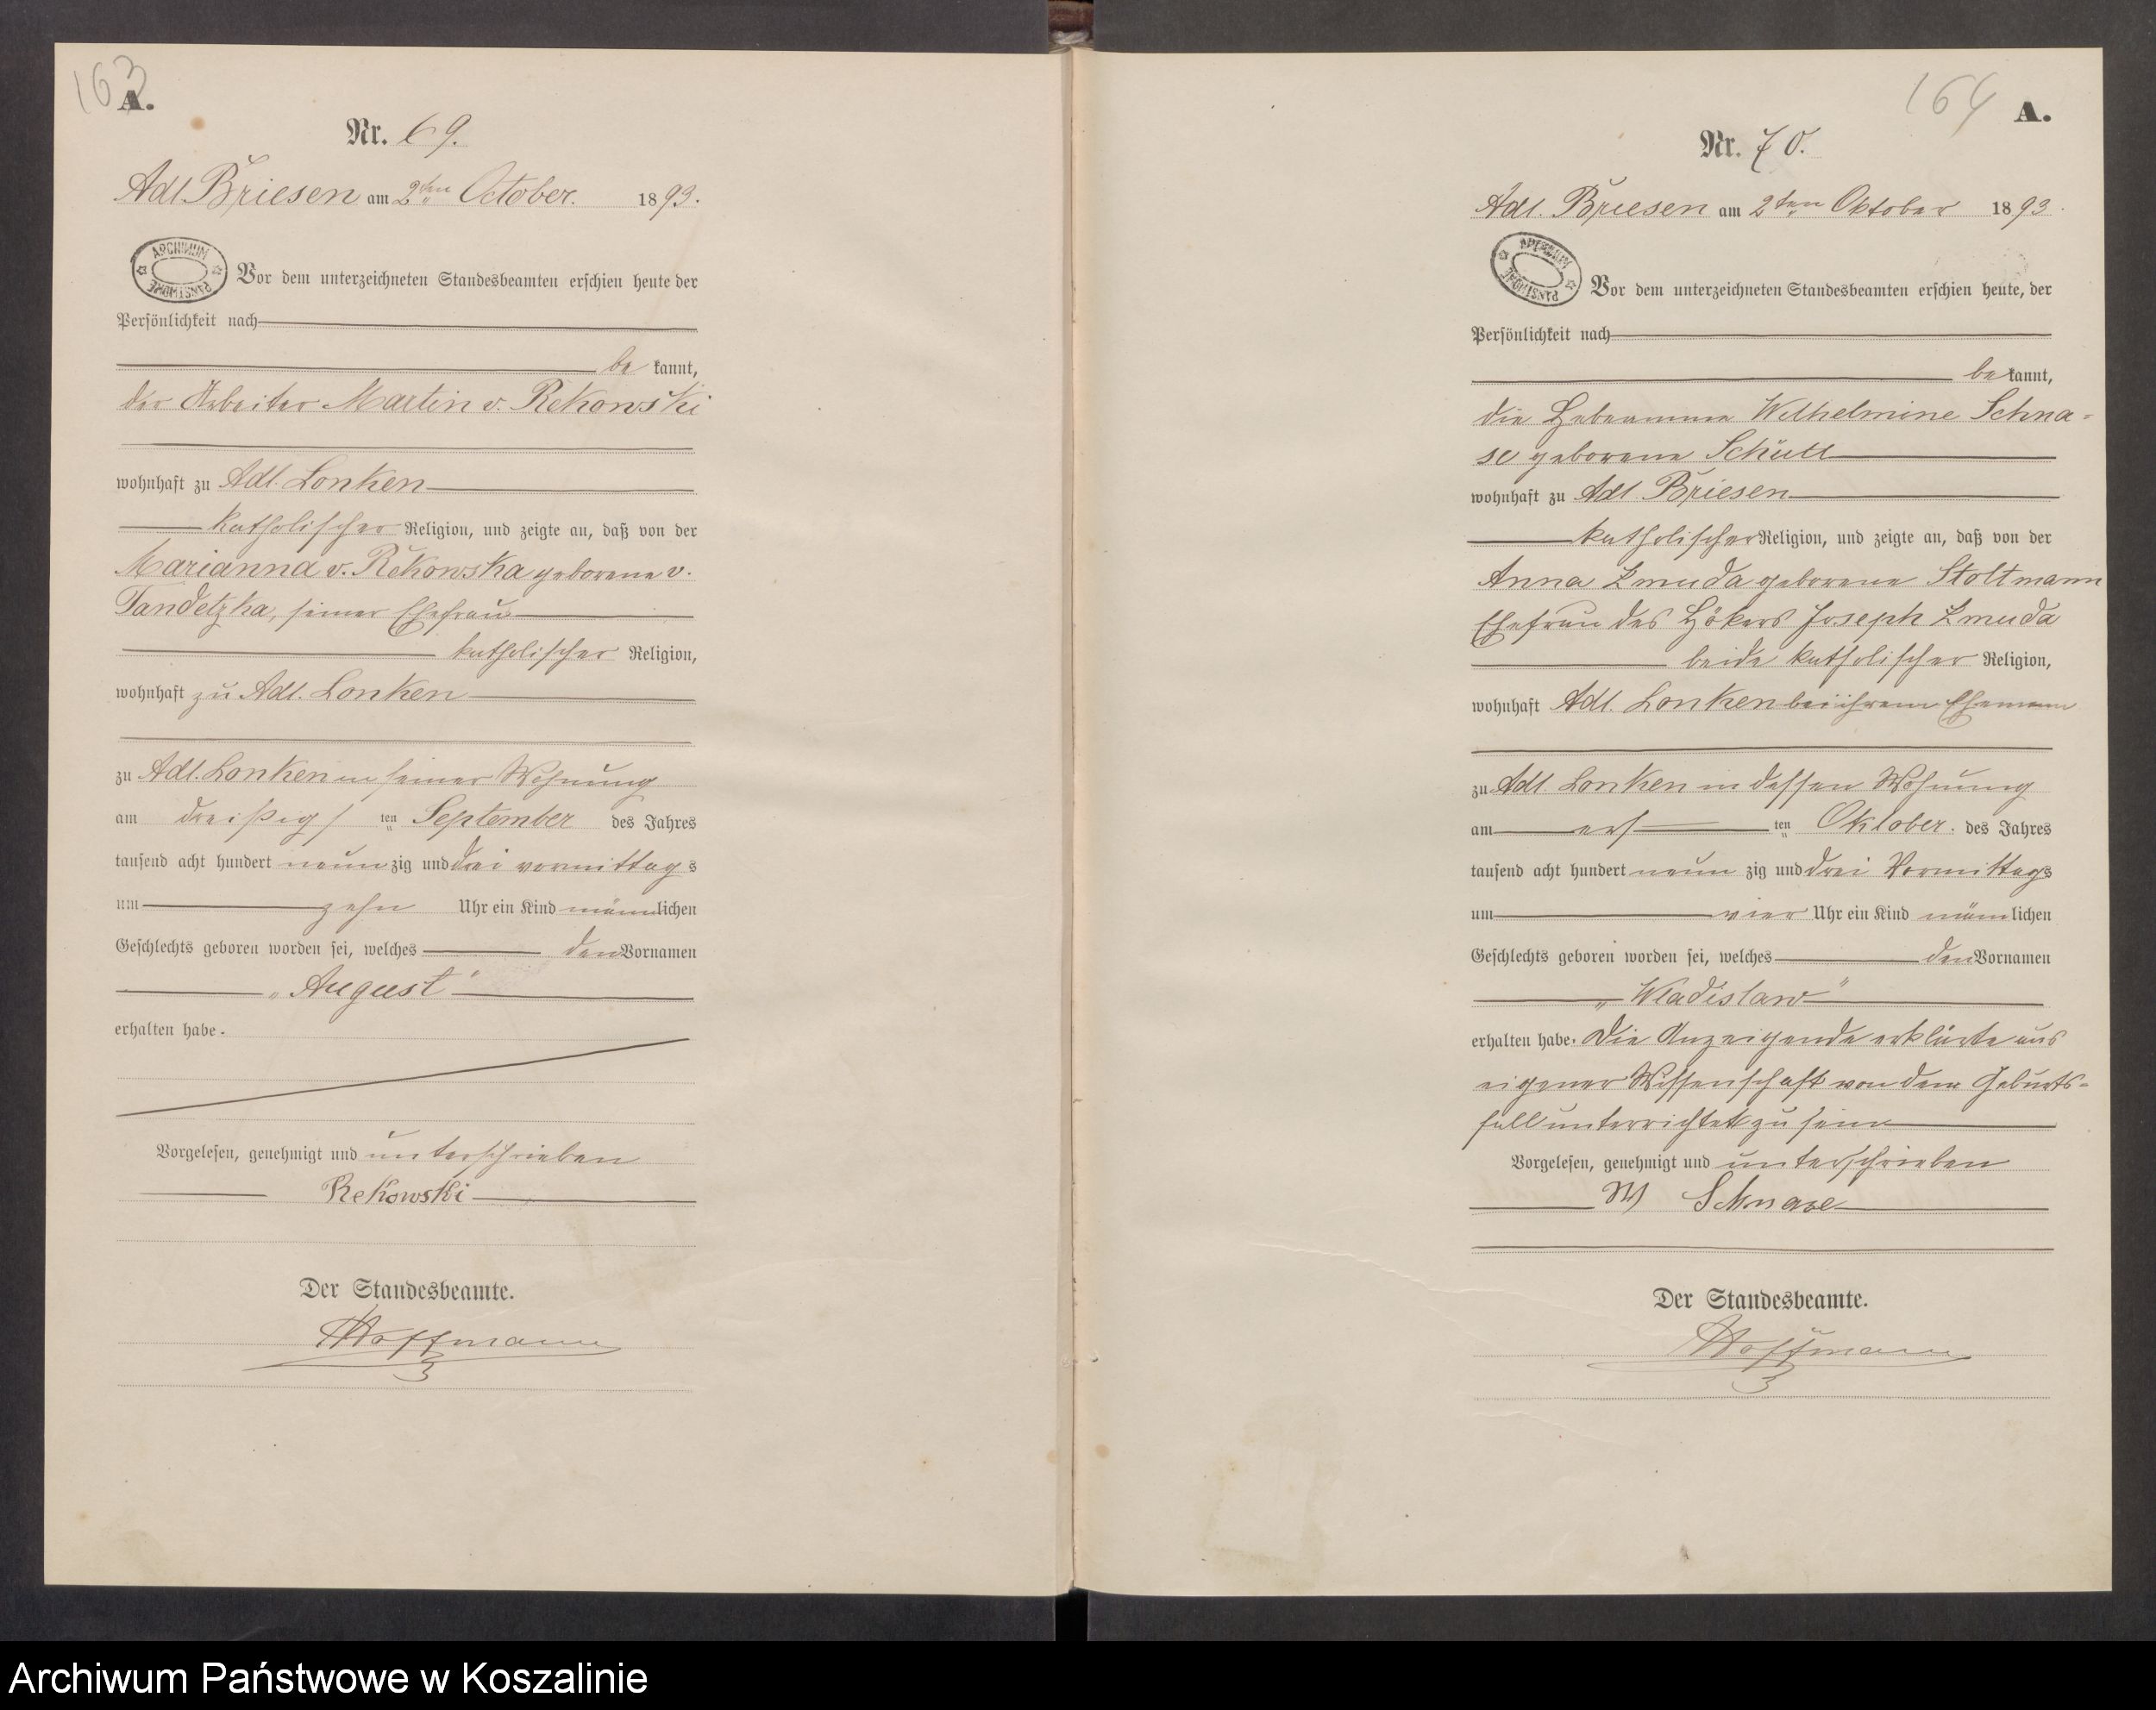 163
A.
Nr. 69.
Adl. Briesen am 2ten October. 1893.
ARCHIWUM PAŃSTWOWE
Vor dem unterzeichneten Standesbeamten erschien heute der
Persönlichkeit nach
be kannt,
der Arbeiter Martin v. Rekowski
wohnhaft zu Adl. Lonken
katholischer Religion, und zeigte an, daß von der
Marianna v. Rekowska geborene v.
Tandetzka, seiner Ehefrau
katholischer Religion,
wohnhaft zu Adl. Lonken
zu Adl. Lonken in seiner Wohnung
am dreißigs ten September des Jahres
tausend acht hundert neun zig und drei vormittags
um zehn Uhr ein Kind männlichen
Geschlechts geboren worden sei, welches den Vornamen
„August“
erhalten habe.
Vorgelesen, genehmigt und unterschrieben
Rekowski
Der Standesbeamte.
Hoffmann
164
A.
Nr. 70.
Adl. Briesen am 2ten Oktober 1893.
ARCHIWUM PAŃSTWOWE
Vor dem unterzeichneten Standesbeamten erschien heute, der
Persönlichkeit nach
be kannt,
die Hebeamme Wilhelmine Schna-
se geborene Schütt
wohnhaft zu Adl. Briesen
katholischer Religion, und zeigte an, daß von der
Anna Zmuda geborene Stoltmann
Ehefrau des Hökers Joseph Zmuda
beide katholischer Religion,
wohnhaft Adl. Lonken bei ihrem Ehemann
zu Adl. Lonken in dessen Wohnung
am ers ten Oktober. des Jahres
tausend acht hundert neun zig und drei Vormittags
um vier Uhr ein Kind männlichen
Geschlechts geboren worden sei, welches den Vornamen
„Wladislaw“
erhalten habe. Die Anzeigende erklärte aus
eigener Wissenschaft von dem Geburts-
fall unterrichtet zu sein
Vorgelesen, genehmigt und unterschrieben
W Schnase
Der Standesbeamte.
Hoffmann
Archiwum Państwowe w Koszalinie